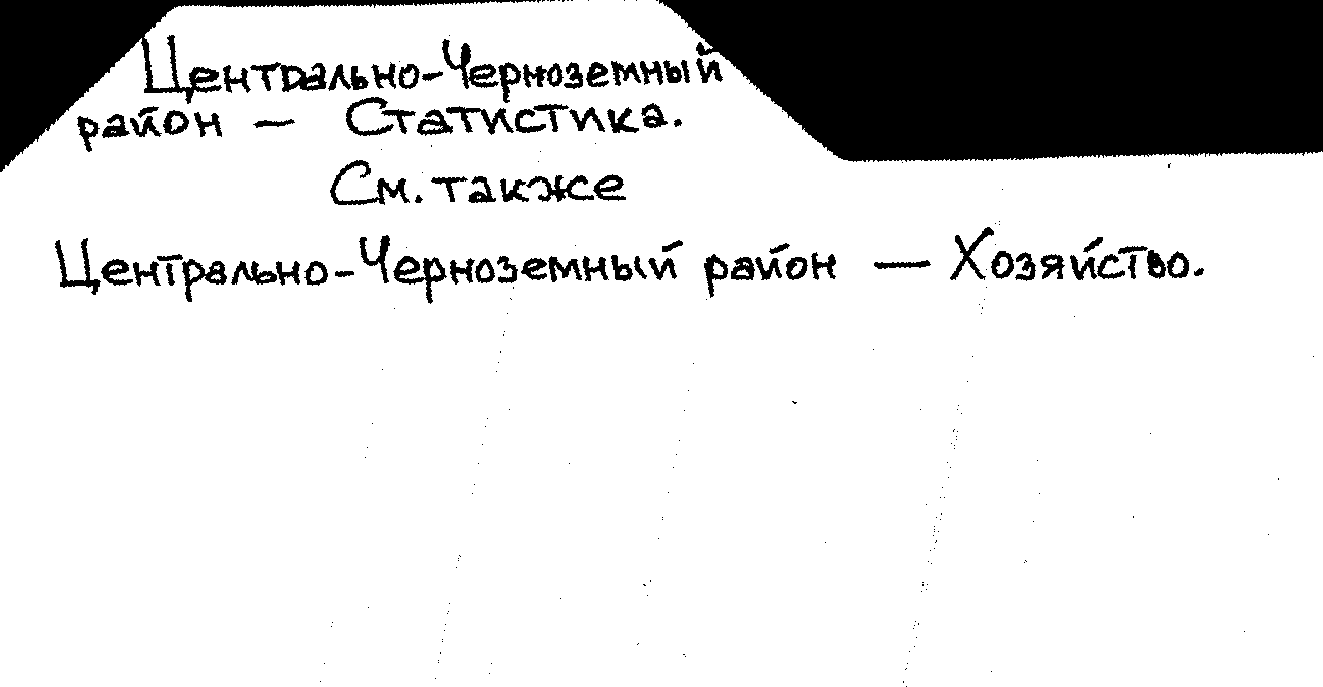 Центрально-Черноземный
район — Статистика.
См. также
Центрально-Черноземный район — Хозяйство.